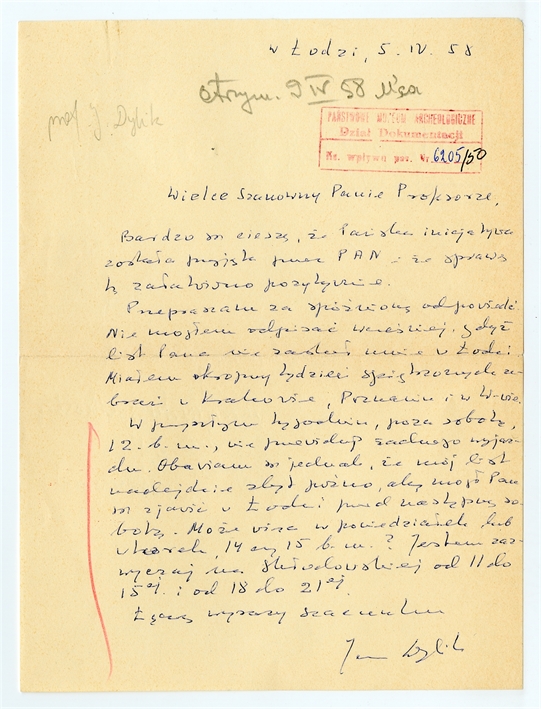 w Łodzi, 5. IV. 58
otrzym. 9 IV 58
prof J. Dylik
PAŃSTWOWE MUZEUM ARCHEOLOGICZNE
Dział Dokumentacji
Nr. wpływu poz. Nr. 6205/50
Wielce Szanowny Panie Profesorze,
Bardzo się cieszę, że Pańska inicjatywa
została przyjęta przez PAN i że sprawę
tę załatwiono pozytywnie.
Przepraszam za spóźnioną odpowiedź.
Nie mogłem odpisać wcześniej, gdyż
list Pana nie zastał mnie w Łodzi.
Miałem okropny tydzień spiętrzonych ze-
brań w Krakowie, Poznaniu i w W-wie.
W przyszłym tygodniu, poza sobotą,
12. b.m., nie przewiduję żadnego wyjaz-
du. Obawiam się jednak, że mój list
nadejdzie zbyt późno, aby mógł Pan
się zjawić w Łodzi przed następną so-
botą. Może więc w poniedziałek lub
wtorek, 14 czy 15 b.m.? Jestem zaz-
wyczaj na Skłodowskiej od 11 do
15ej i od 18 do 21ej.
Łączę wyrazy szacunku
Jan Dylik